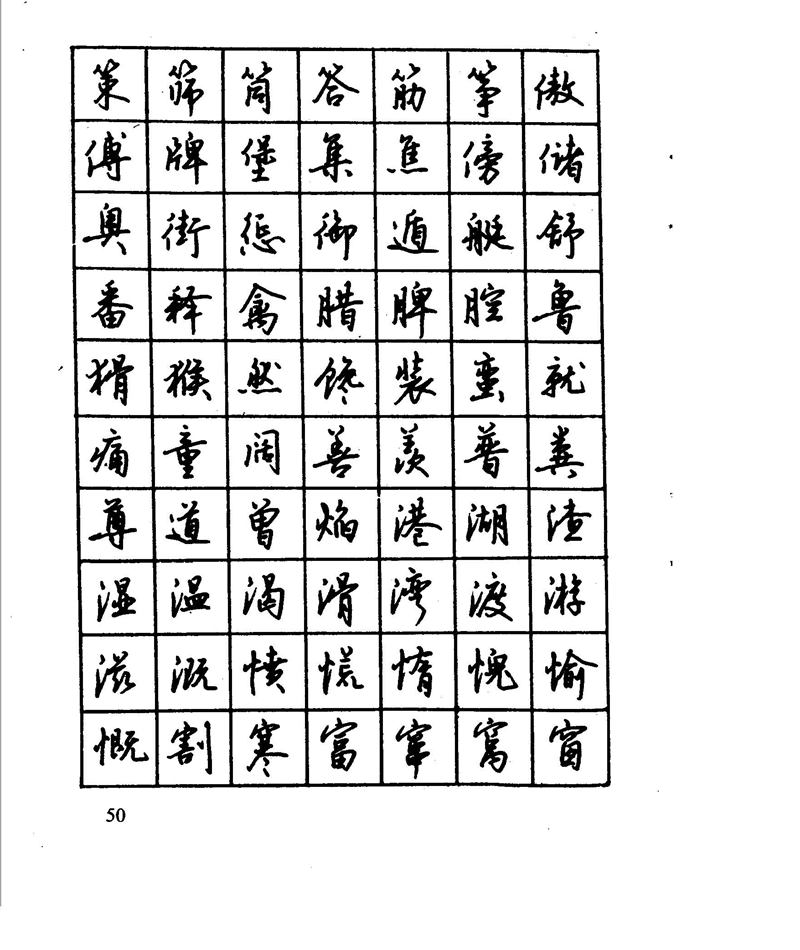 策 筛 筒 答 筋 筝 傲
傅 牌 堡 集 焦 傍 储
奥 街 惩 御 遁 艇 舒
番 释 禽 腊 脾 腔 鲁
猾 猴 然 馋 装 蛮 就
痛 童 阔 善 羡 普 粪
尊 道 曾 焰 港 湖 渣
湿 温 渴 滑 湾 渡 游
滋 溉 愤 慌 惰 愧 愉
慨 割 寒 富 窜 窝 窗
50